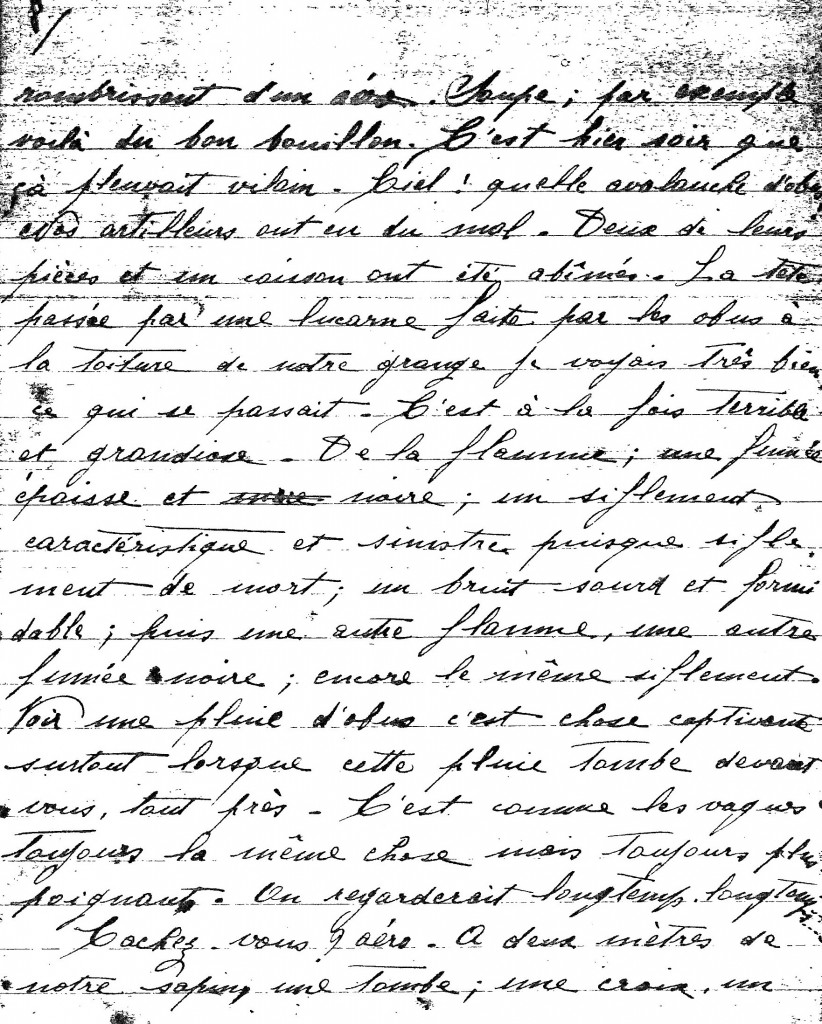 8/
rombrissent d'un aéro. Soupe ; par exemple
voilà du bon bouillon. C'est hier soir que
çà pleuvait vilain. Ciel ! quelle avalanche d'obus
Nos artilleurs ont eu du mal. Deux de leurs
pièces et un caisson ont été abîmés. La tête
passée par une lucarne faite par les obus à
la toiture de notre grange je voyais très bien
ce qui se passait. C'est à la fois terrible
et grandiose. De la flamme ; une fumée
épaisse et noire ; un siflement
caractéristique et sinistre puisque sifle
ment de mort ; un bruit sourd et formi
dable ; puis une autre flamme, une autre
fumée noire ; encore le même siflement.
Voir une pluie d'obus c'est chose captivante
surtout lorsque cette pluie tombe devant
vous, tout près. C'est comme les vagues
toujours la même chose mais toujours plus
poignant. On regarderait longtemp, longtemps...
Cachez-vous aéro. A deux mètres de
notre sapin, une tombe ; une croix, un